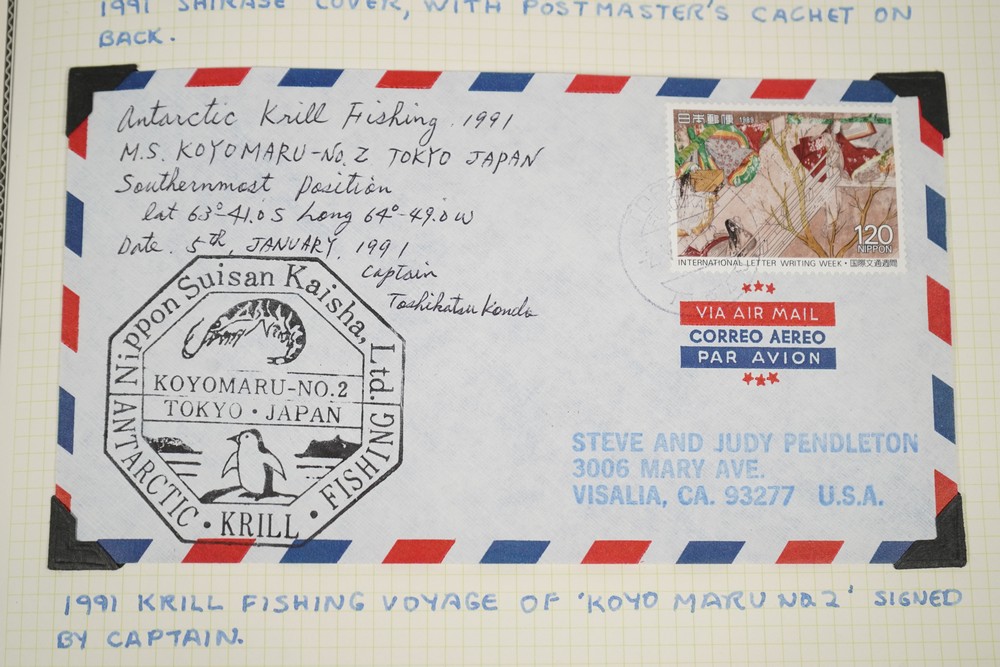 1991 SHIRASE COVER, WITH POSTMASTER'S CACHET ON
BACK.
Antarctic Krill Fishing. 1991
M.S. KOYOMARU-No. 2 TOKYO JAPAN
Southernmost Position
lat 63°-41.0 S Long 64°-49.0 W
Date. 5th, JANUARY, 1991
Captain
Toshikatsu Kondo
日本郵便 1989
120
NIPPON
INTERNATIONAL LETTER WRITING WEEK・国際文通週間
VIA AIR MAIL
CORREO AEREO
PAR AVION
Nippon Suisan Kaisha, Ltd.
KOYOMARU-NO.2
TOKYO・JAPAN
ANTARCTIC・KRILL・FISHING
STEVE AND JUDY PENDLETON
3006 MARY AVE.
VISALIA, CA. 93277 U.S.A.
1991 KRILL FISHING VOYAGE OF 'KOYO MARU NO. 2' SIGNED
BY CAPTAIN.